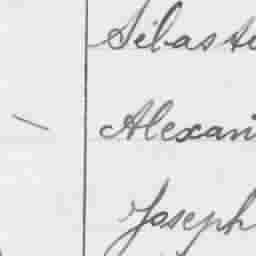 Sebaste
Alexan
Joseph